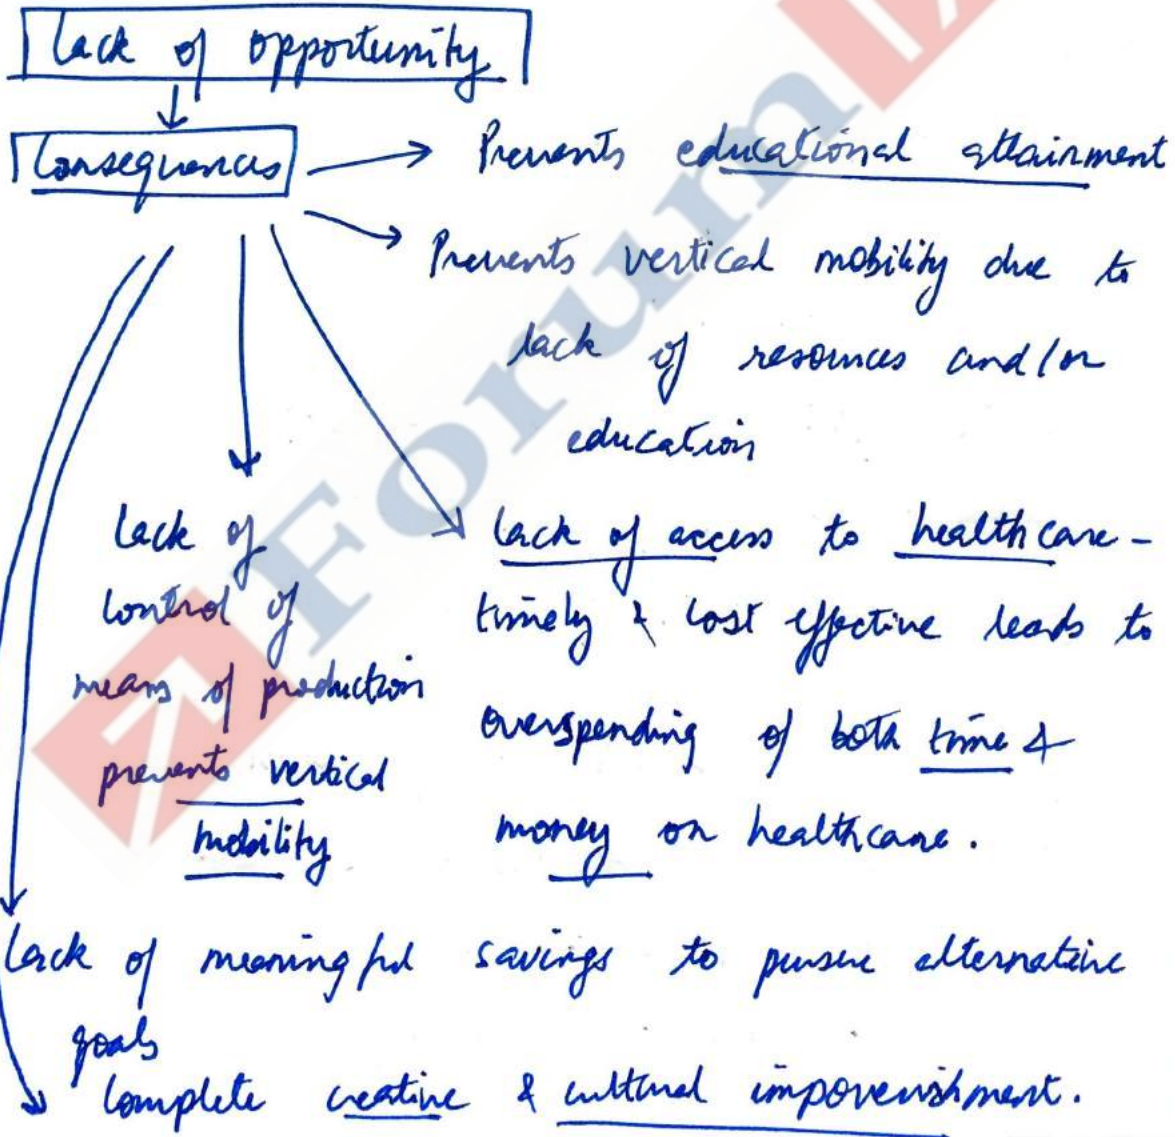 Lack of opportunity
Consequences
Prevents educational attainment
Prevents vertical mobility due to
lack of resources and/or
education
Lack of
control of
means of production
prevents vertical
mobility
Lack of access to healthcare -
timely & cost effective leads to
overspending of both time &
money on healthcare.
Lack of meaningful savings to pursue alternative
goals
Complete creative & cultural impoverishment.
Forum